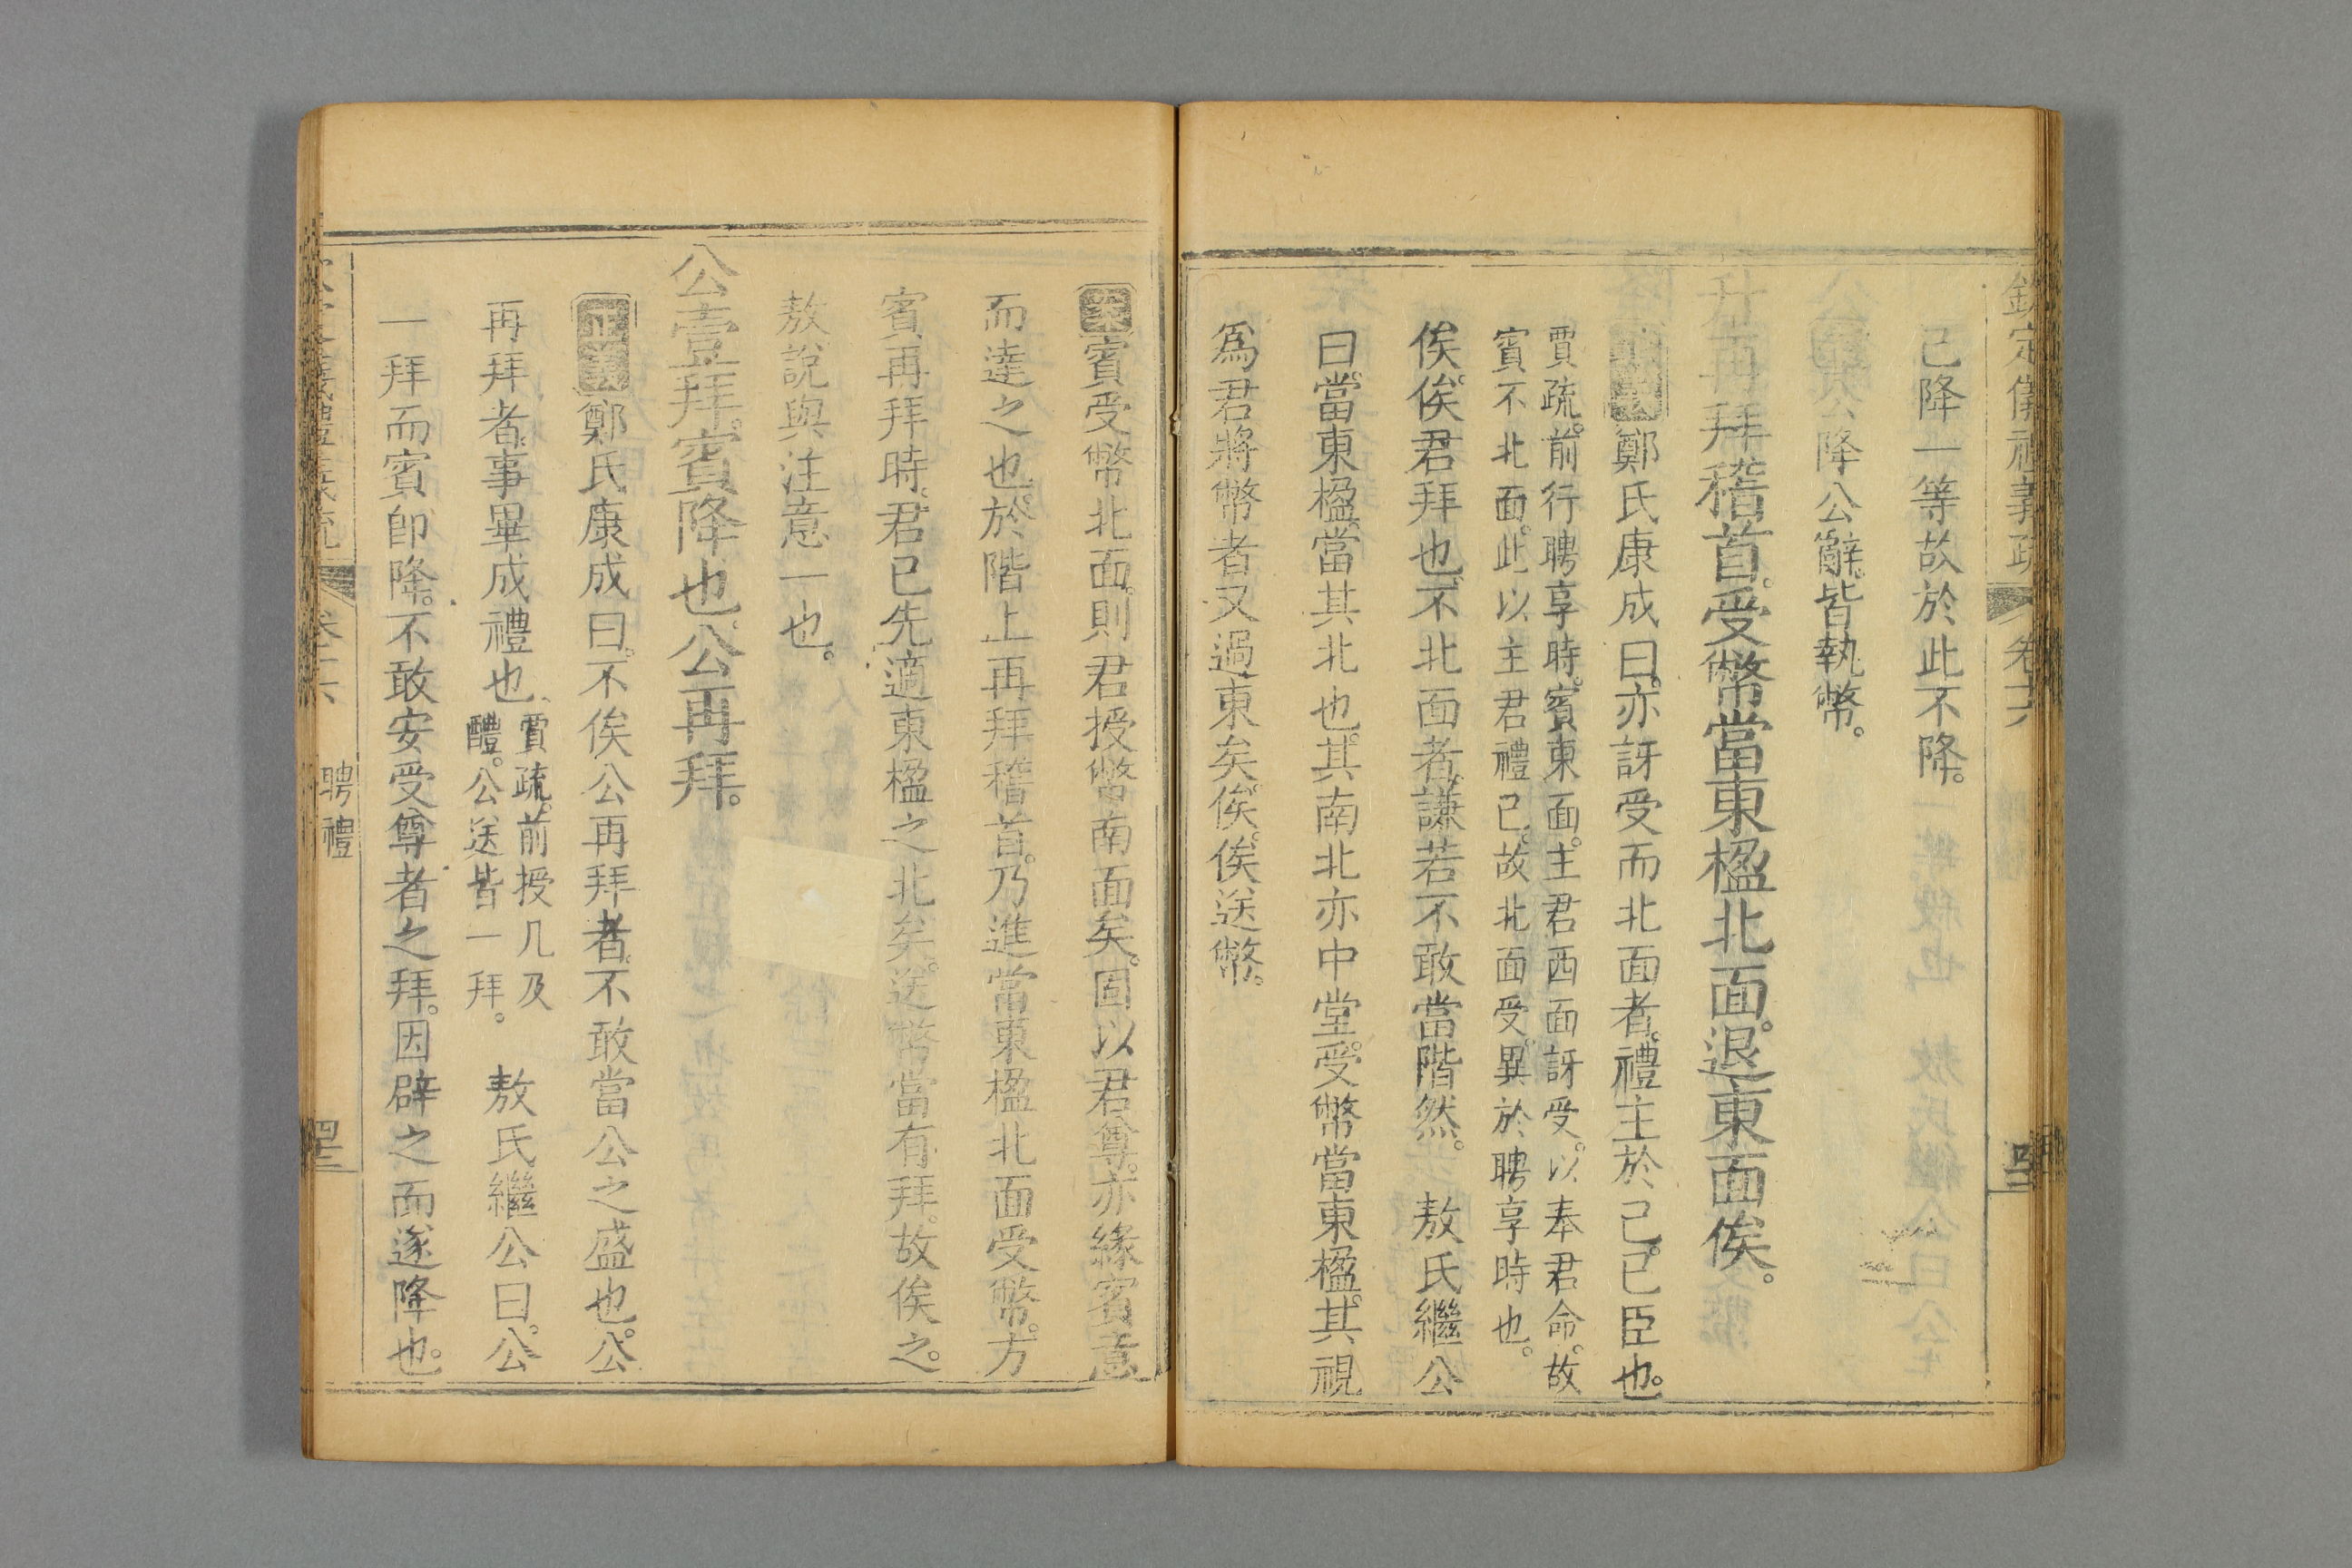 欽定儀禮義疏 卷十六
已降一等故於此不降。
公降公辭。皆執幣。
再拜稽首。受幣當東楹北面。退東面俟。
鄭氏康成曰。亦訝受而北面者。禮主於己。己臣也。
賈疏。前行聘享時。賓東面。主君西面訝受。以奉君命。故
賓不北面。此以主君禮己。故北面受。異於聘享時也。
俟。俟君拜也。不北面者。謙若不敢當階然。 敖氏繼公
曰。當東楹。當其北也。其南北亦中堂。受幣當東楹。其視
爲君將幣者又過東矣。俟。俟送幣。
案賓受幣北面。則君授幣南面矣。固以君尊。亦緣賓意
而達之也。於階上再拜稽首。乃進當東楹北面受幣。方
賓再拜時。君已先適東楹之北矣。送幣當有拜。故俟之。
敖說與注意一也。
公壹拜。賓降也。公再拜。
正義鄭氏康成曰。不俟公再拜者。不敢當公之盛也。公
再拜者。事畢成禮也。
賈疏。前授几及
醴。公送皆一拜。
敖氏繼公曰。公
一拜而賓卽降。不敢安受尊者之拜。因辟之而遂降也。
聘禮